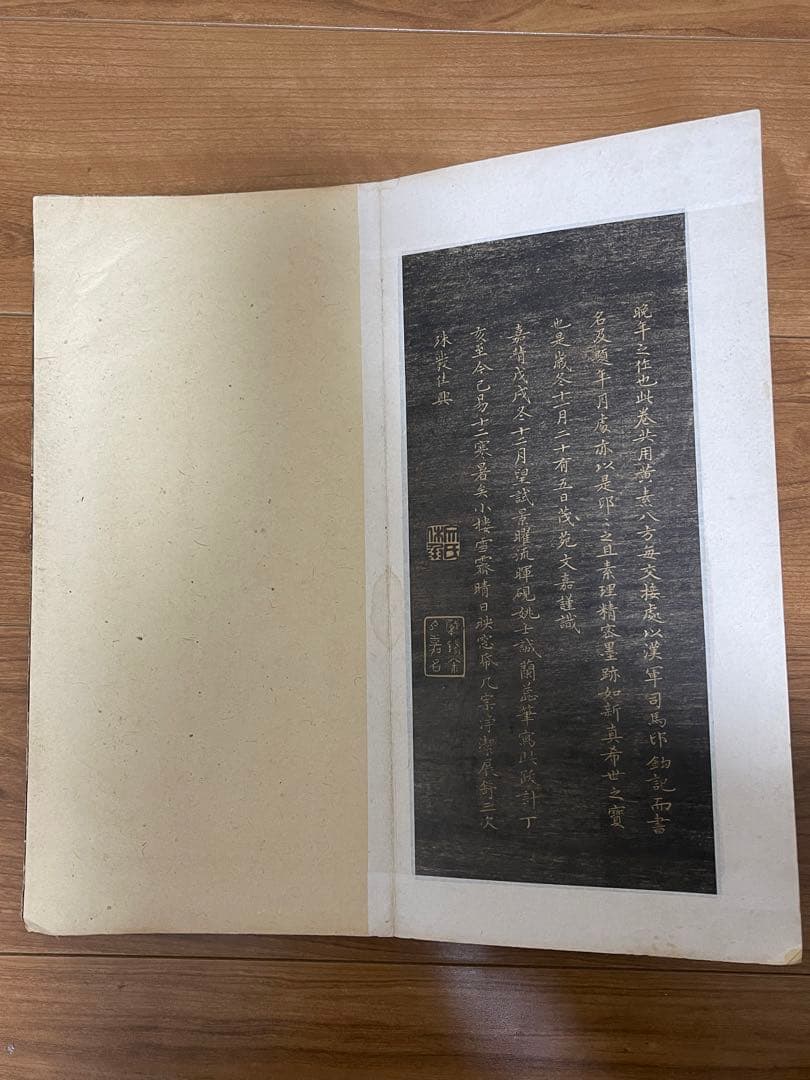 晚年之作也此卷共用黃素八方每交接處以漢軍司馬印鈐記而書
名及題年月處亦以是印〻之且素理精密墨跡如新真希世之寶
也是歲冬十一月二十有五日茂苑文嘉謹識
嘉靖戊戌冬十二月望試景曜流暉硯姚士誠蘭蕊筆寫此跋計丁
亥至今已易十二寒暑矣小樓雪霽晴日映窓爭淨潔展錄三次
殊覺佳興
文氏休承
肇錫余以嘉名